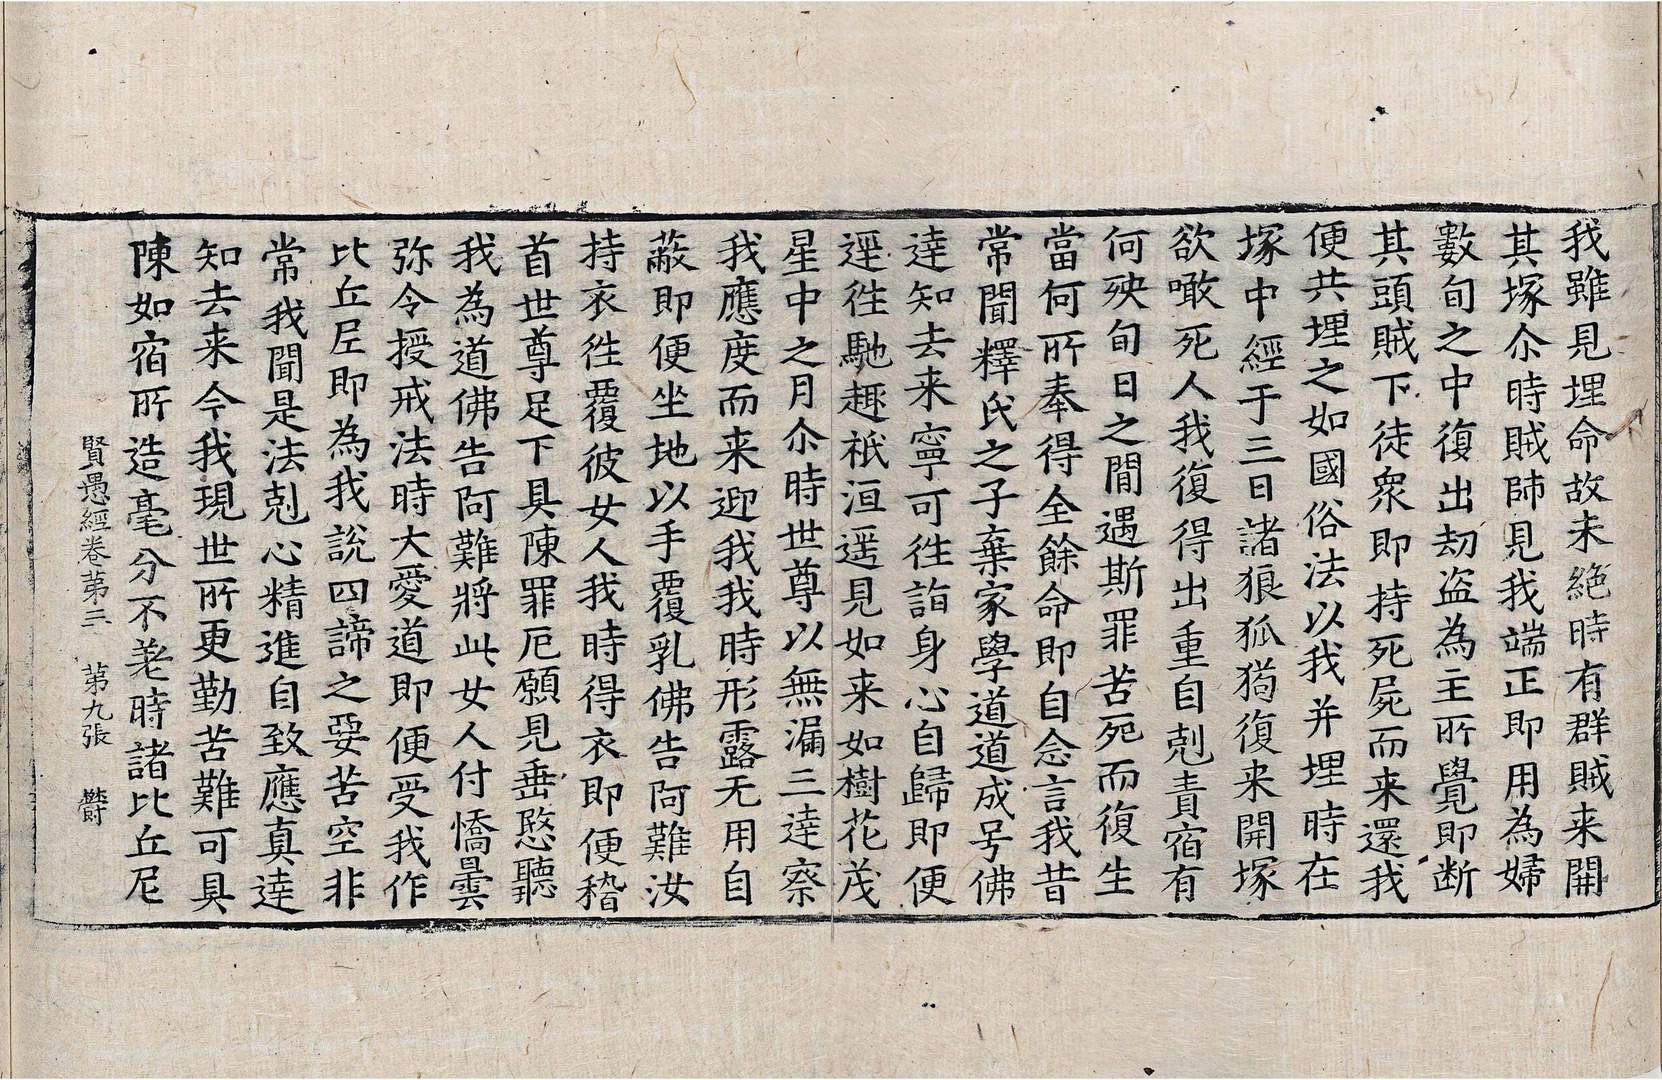 我雖見埋命故未絕時有群賊来開
其塚尒時賊師見我端正即用為婦
數旬之中復出劫盗為主所覺即断
其頭賊下徒衆即持死屍而来還我
便共埋之如國俗法以我并埋時在
塚中經于三日諸狼狐猗復来開塚
欲噉死人我復得出重自剋責宿有
何殃旬日之間遇斯罪苦死而復生
當何所奉得全餘命即自念言我昔
常聞釋氏之子棄家學道道成号佛
達知去来寧可徃詣身心自歸即便
逕徃馳趣祇洹遥見如来如樹花茂
星中之月尒時世尊以無漏三達察
我應度而来迎我我時形露无用自
蔽即便坐地以手覆乳佛告阿難汝
持衣徃覆彼女人我時得衣即便稽
首世尊足下具陳罪厄願見垂愍聽
我為道佛告阿難將此女人付憍曇
弥令授戒法時大愛道即便受我作
比丘尼即為我說四諦之要苦空非
常我聞是法剋心精進自致應真達
知去来今我現世所更勤苦難可具
陳如宿所造毫分不差時諸比丘尼
賢愚經卷苐三 苐九張 欝